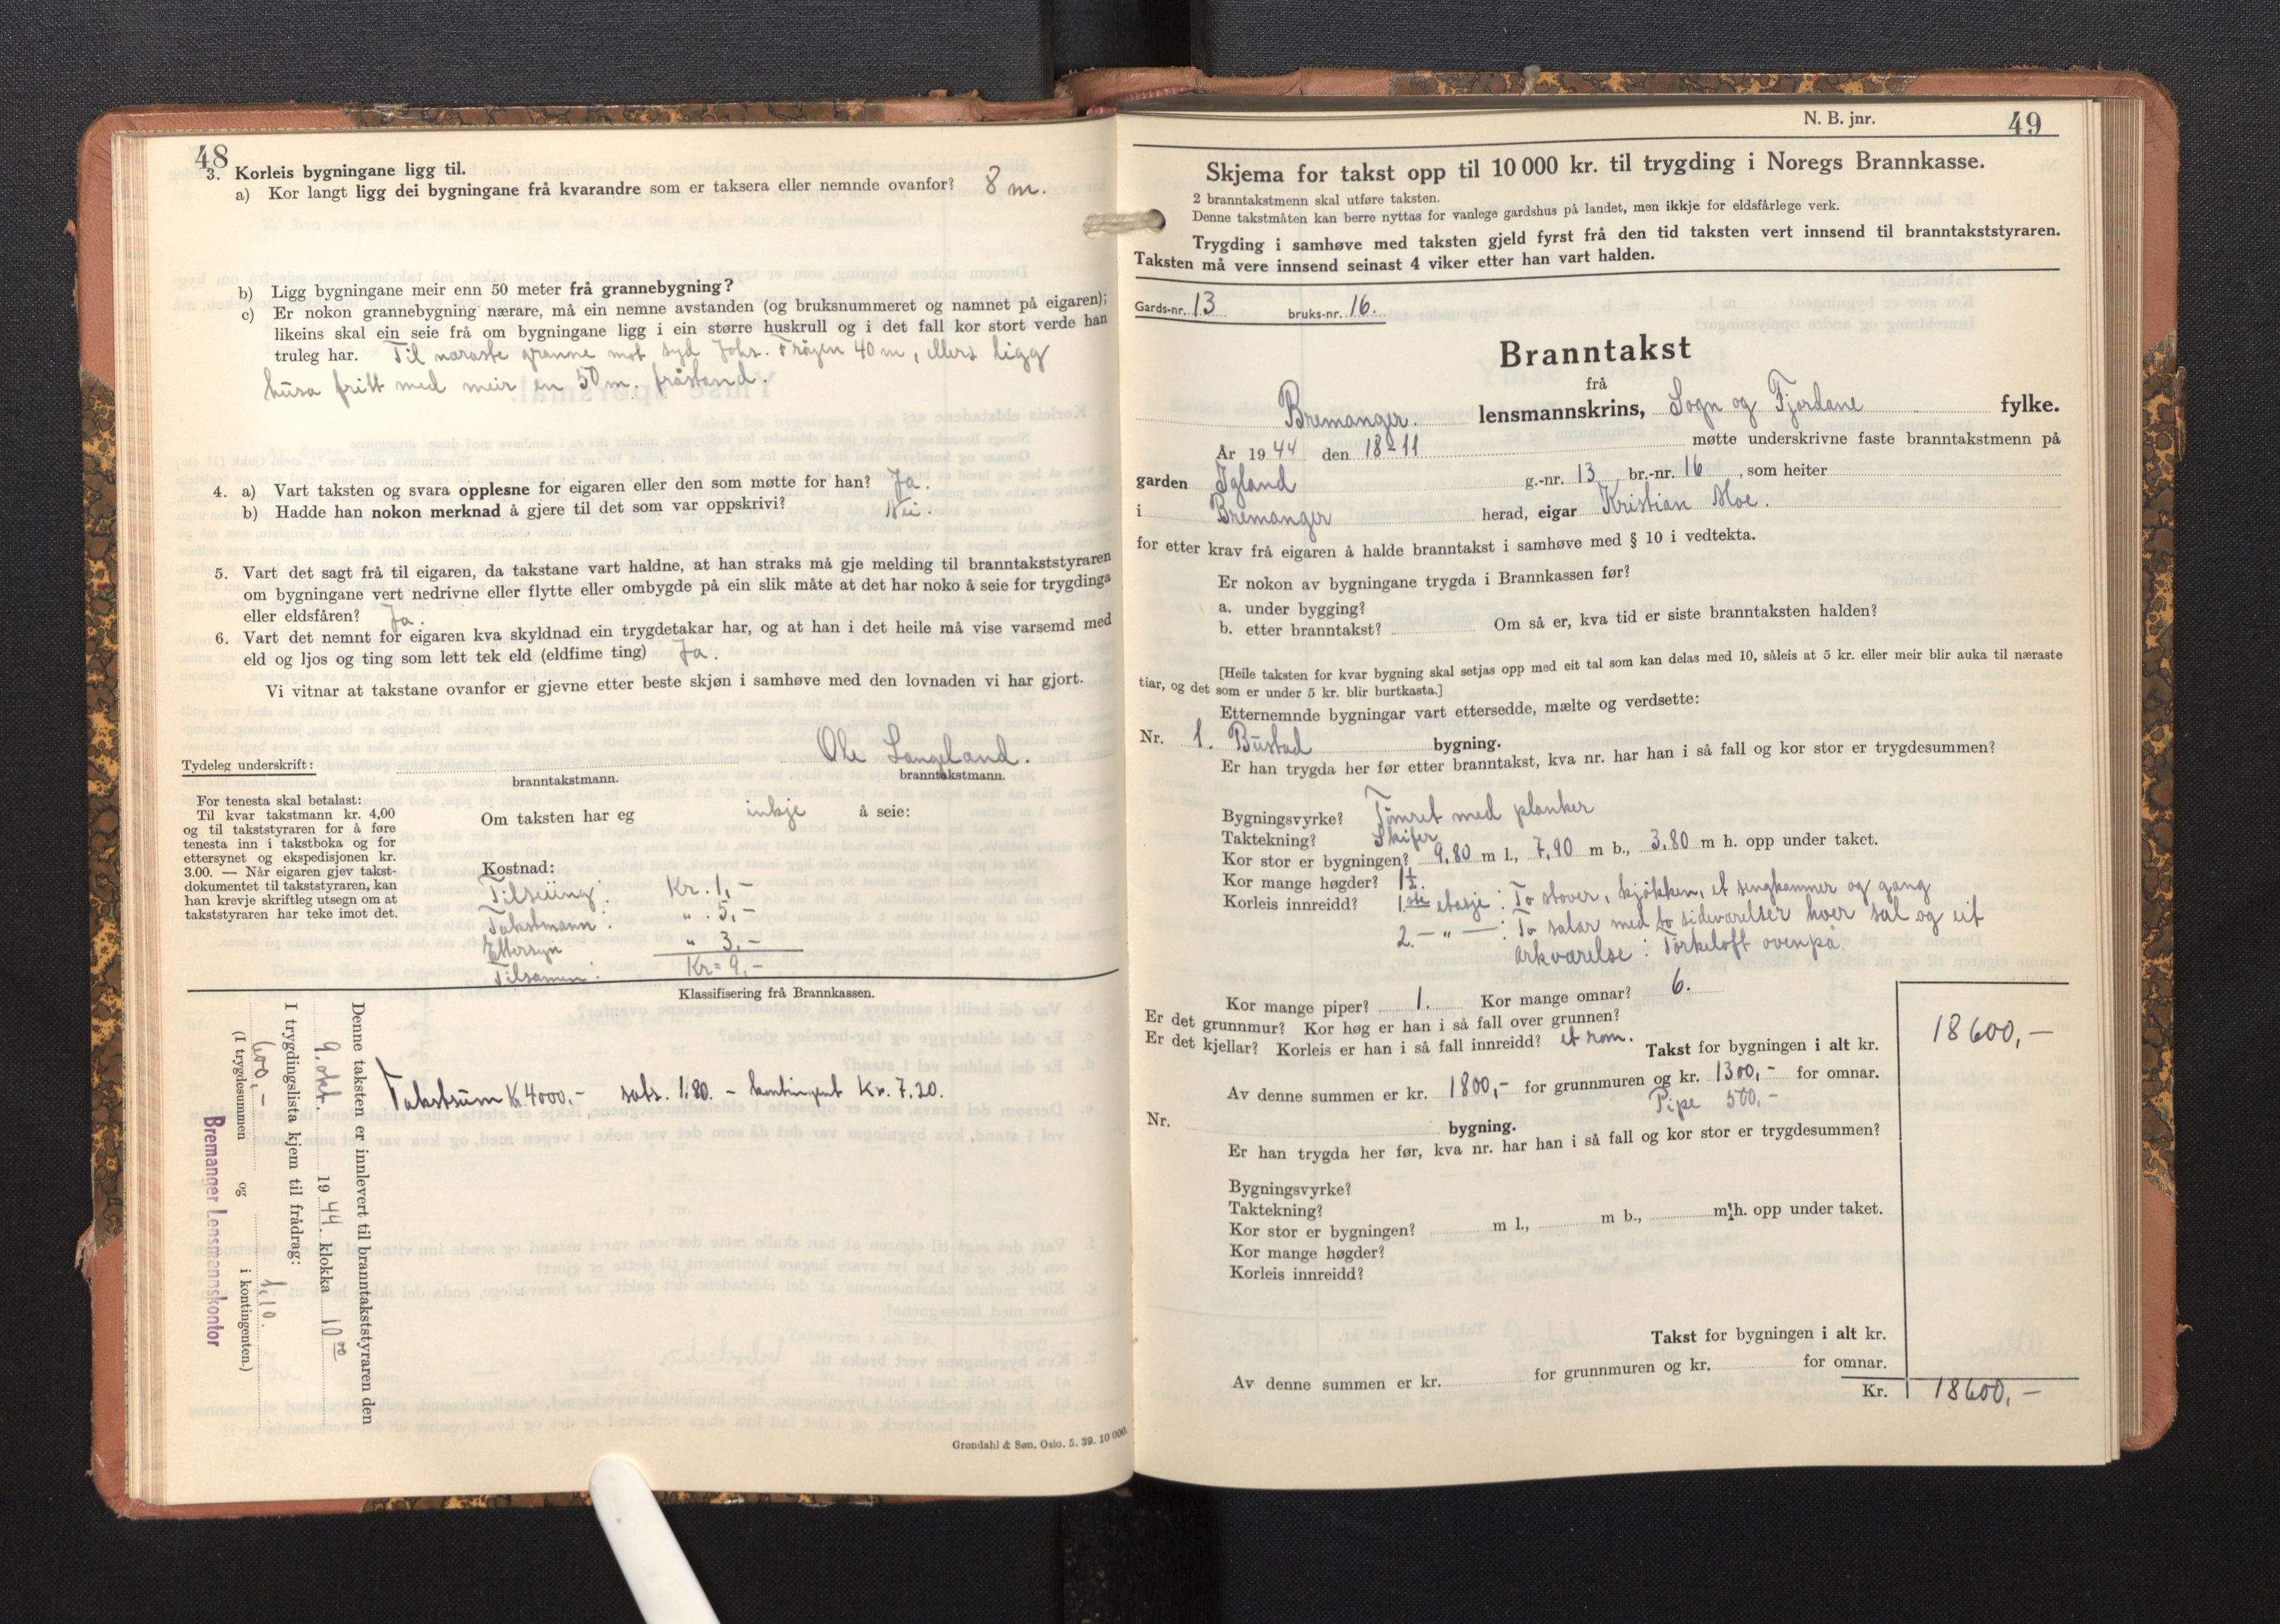 48
3. Korleis bygningane ligg til.
a) Kor langt ligg dei bygningane frå kvarandre som er taksera eller nemnde ovanfor? 8 m.
b) Ligg bygningane meir enn 50 meter frå grannebygning?
c) Er nokon grannebygning nærare, må ein nemne avstanden (og bruksnummeret og namnet på eigaren);
likeins skal ein seie frå om bygningane ligg i ein større huskrull og i det fall kor stort verde han
truleg har. Til næraste granne mot syd Johs. Frøyen 40 m, ellers ligg
husa fritt med meir en 50 m. fråstand.
4. a) Vart taksten og svara opplesne for eigaren eller den som møtte for han? Ja.
b) Hadde han nokon merknad å gjere til det som var oppskrivi? Nei.
5. Vart det sagt frå til eigaren, da takstane vart haldne, at han straks må gje melding til branntakststyraren
om bygningane vert nedrivne eller flytte eller ombygde på ein slik måte at det har noko å seie for trygdinga
eller eldsfåren? Ja.
6. Vart det nemnt for eigaren kva skyldnad ein trygdetakar har, og at han i det heile må vise varsemd med
eld og ljos og ting som lett tek eld (eldfime ting) Ja.
Vi vitnar at takstane ovanfor er gjevne etter beste skjøn i samhøve med den lovnaden vi har gjort.
Ole Langeland.
Tydeleg underskrift:
branntakstmann. branntakstmann.
For tenesta skal betalast:
Til kvar takstmann kr. 4,00
og til takststyraren for å føre
tenesta inn i takstboka og for
ettersynet og ekspedisjonen kr.
3.00. — Når eigaren gjev takst-
dokumentet til takststyraren, kan
han krevje skriftleg utsegn om at
takststyraren har teke imot det.
Om taksten har eg inkje å seie:
Kostnad:
Tilseiing: Kr. 1,-
Takstmann: " . 5,-
Ettersyn " 3,-
Tilsamen: Kr= 9,-
Klassifisering frå Brannkassen.
Takstsum K. 4000.- sats. 1.80. - kontingent Kr. 7.20.
Denne taksten er innlevert til branntakststyraren den
9. okt. 1944. klokka 10 00
I trygdingslista kjem til frådrag:
600,- 1.10.
(I trygdesummen og i kontingenten.)
Bremanger Lensmannskontor
Grøndahl & Søn. Oslo. 5. 39. 10 000.
N. B. jnr. 49
Skjema for takst opp til 10 000 kr. til trygding i Noregs Brannkasse.
2 branntakstmenn skal utføre taksten.
Denne takstmåten kan berre nyttas for vanlege gardshus på landet, men ikkje for eldsfårlege verk.
Trygding i samhøve med taksten gjeld fyrst frå den tid taksten vert innsend til branntakststyraren.
Taksten må vere innsend seinast 4 viker etter han vart halden.
Gards-nr. 13 bruks-nr. 16.
Branntakst
frå
Bremanger. lensmannskrins, Sogn og Fjordane fylke.
År 1944 den 18-11 møtte underskrivne faste branntakstmenn på
garden Igland g.-nr. 13, br.-nr. 16, som heiter
i Bremanger herad, eigar Kristian Moe.
for etter krav frå eigaren å halde branntakst i samhøve med § 10 i vedtekta.
Er nokon av bygningane trygda i Brannkassen før?
a. under bygging?
b. etter branntakst? Om så er, kva tid er siste branntaksten halden?
[Heile taksten for kvar bygning skal setjas opp med eit tal som kan delas med 10, såleis at 5 kr. eller meir blir auka til næraste
tiar, og det som er under 5 kr. blir burtkasta.]
Etternemnde bygningar vart ettersedde, mælte og verdsette:
Nr. 1. Bustad bygning.
Er han trygda her før etter branntakst, kva nr. har han i så fall og kor stor er trygdesummen?
Bygningsvyrke? Tømret med planker
Taktekning? Skifer
Kor stor er bygningen? 9,80 m l., 7,90 m b., 3,80 m h. opp under taket.
Kor mange høgder? 1½.
Korleis innreidd? 1.ste etasje: To stover, kjøkken, et sengkammer og gang
2. – " – : To salar med to sideværelser hver sal og eit
arkværelse: Tørkeloft ovenpå.
Kor mange piper? 1. Kor mange omnar? 6.
Er det grunnmur? Kor høg er han i så fall over grunnen?
Er det kjellar? Korleis er han i så fall innreidd? et rom. Takst for bygningen i alt kr. 18600,-
Av denne summen er kr. 1800,- for grunnmuren og kr. 1300,- for omnar.
Pipe 500,-
Nr. bygning.
Er han trygda her før, kva nr. har han i så fall og kor stor er trygdesummen?
Bygningsvyrke?
Taktekning?
Kor stor er bygningen? m l., m b., m h. opp under taket.
Kor mange høgder?
Korleis innreidd?
Takst for bygningen i alt kr.
Av denne summen er kr. for grunnmuren og kr. for omnar.
Kr. 18600,-